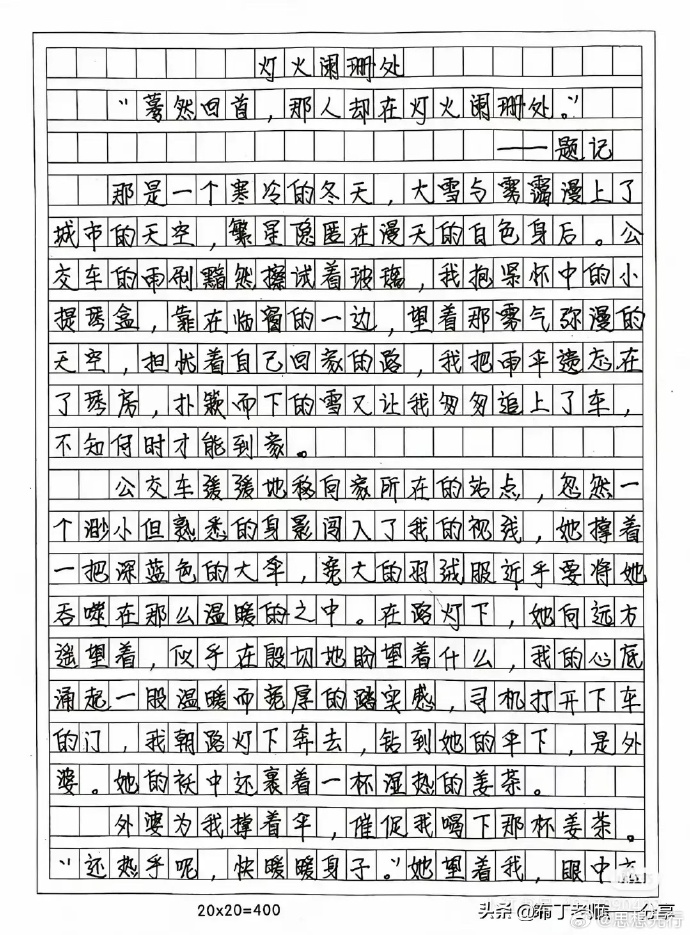 灯火阑珊处
“蓦然回首，那人却在灯火阑珊处。”
——题记
那是一个寒冷的冬天，大雪与雾霭漫上了
城市的天空，繁星隐匿在漫天的白色身后。公
交车的雨刷黯然擦试着玻璃，我抱紧怀中的小
提琴盒，靠在临窗的一边，望着那雾气弥漫的
天空，担忧着自己回家的路，我把雨伞遗忘在
了琴房，扑簌而下的雪又让我匆匆追上了车，
不知何时才能到家。
公交车缓缓地移向家所在的站点，忽然一
个渺小但熟悉的身影闯入了我的视线，她撑着
一把深蓝色的大伞，宽大的羽绒服近乎要将她
吞噬在那么温暖的之中。在路灯下，她向远方
遥望着，似乎在殷切地盼望着什么，我的心底
涌起一股温暖而宽厚的踏实感，司机打开下车
的门，我朝路灯下奔去，钻到她的伞下，是外
婆。她的袄中还裹着一杯湿热的姜茶。
外婆为我撑着伞，催促我喝下那杯姜茶。
“还热乎呢，快暖暖身子。”她望着我，眼中
20x20=400
头条@布丁老师一分享
@思想先行